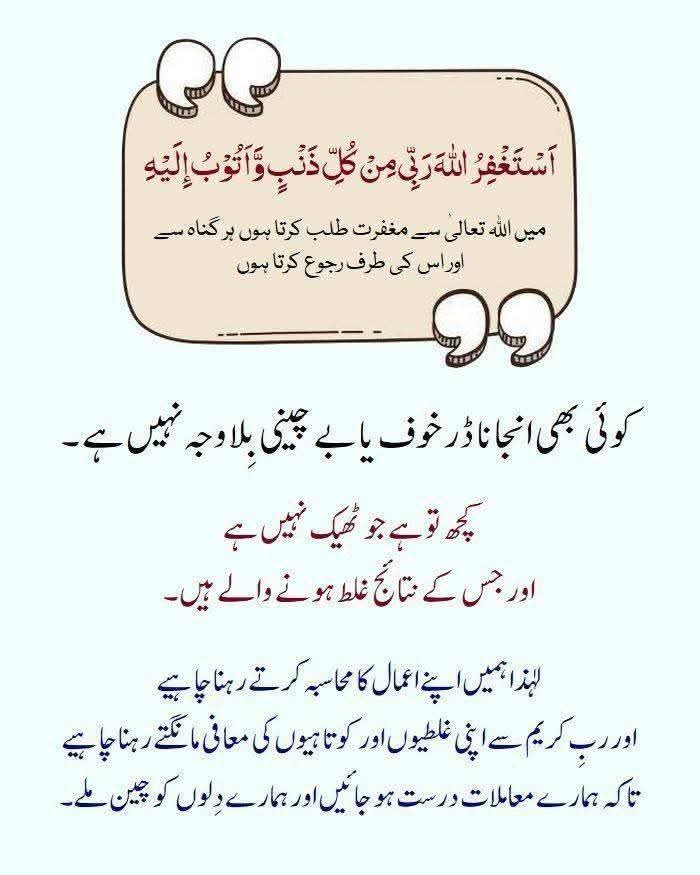 اَسْتَغْفِرُ اللهَ رَبِّىْ مِنْ كُلِّ ذَنْۢبٍ وَّاَتُوْبُ اِلَيْهِ
میں اللہ تعالیٰ سے مغفرت طلب کرتا ہوں ہر گناہ سے
اور اس کی طرف رجوع کرتا ہوں
کوئی بھی انجانا ڈر خوف یا بے چینی بِلاوجہ نہیں ہے۔
کچھ تو ہے جو ٹھیک نہیں ہے
اور جس کے نتائج غلط ہونے والے ہیں۔
لہٰذا ہمیں اپنے اعمال کا محاسبہ کرتے رہنا چاہیے
اور ربِ کریم سے اپنی غلطیوں اور کوتاہیوں کی معافی مانگتے رہنا چاہیے
تاکہ ہمارے معاملات درست ہو جائیں اور ہمارے دِلوں کو چین ملے۔